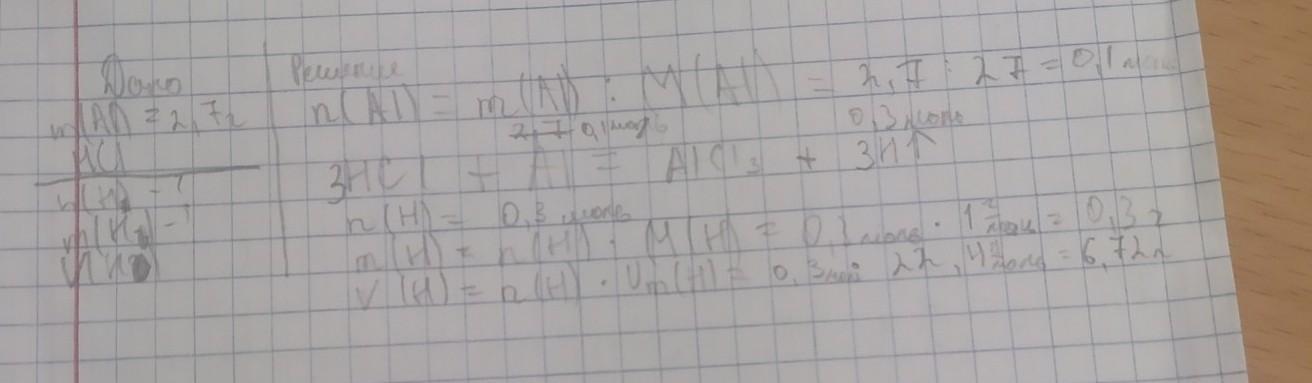 Дано
m(Al) = 2,7г
HCl
n(H₂) - ?
m(H₂) - ?
V(H₂)
Решение
n(Al) = m(Al) : M(Al) = 2,7 : 27 = 0,1 моль
2,7 0,1 моль 0,3 моль
3HCl + Al = AlCl₃ + 3H↑
n(H) = 0,3 моль
m(H) = n(H) · M(H) = 0,3 моль · 1 г/моль = 0,3 г
V(H) = n(H) · Vm(H) = 0,3 моль 22,4 л/моль = 6,72 л